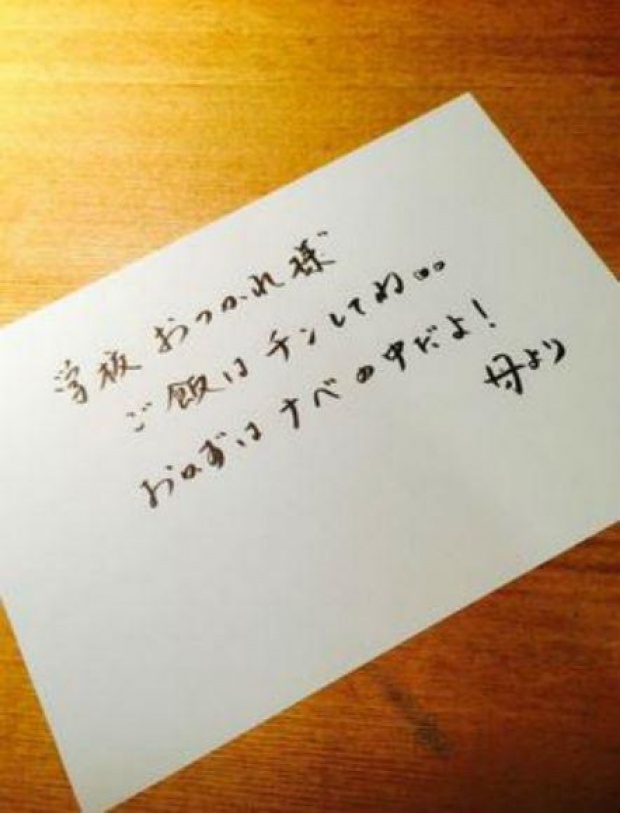 学校 おつかれ様
ご飯は チンしてね。。
おかずは ナベの中だよ!
母より